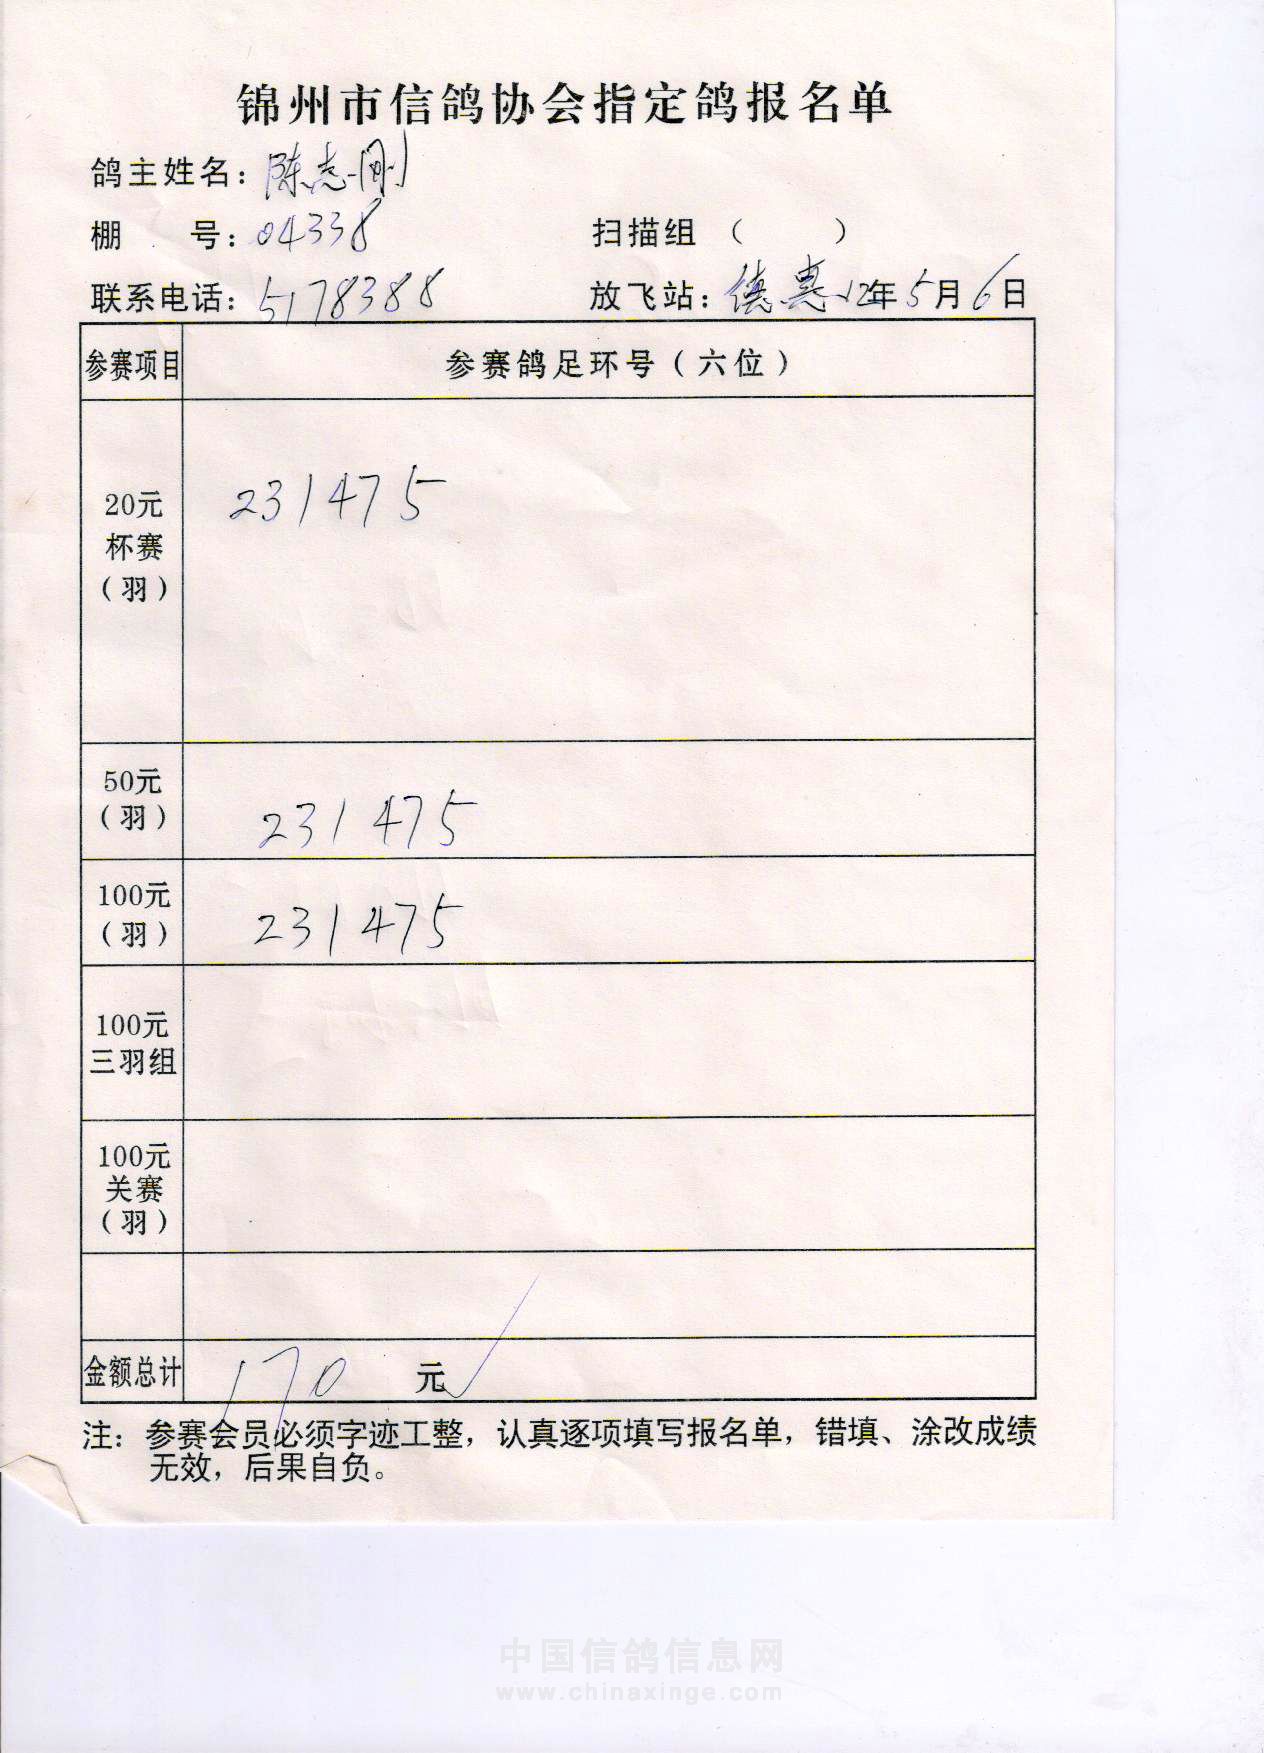 锦州市信鸽协会指定鸽报名单
鸽主姓名：陈志刚
棚 号：04338 扫描组（ ）
联系电话：5178388 放飞站：德惠 12年5月6日
参赛项目 参赛鸽足环号（六位）
20元
杯赛
（羽）
231475
50元
（羽）
231475
100元
（羽）
231475
100元
三羽组
100元
关赛
（羽）
金额总计 170 元
注：参赛会员必须字迹工整，认真逐项填写报名单，错填、涂改成绩
无效，后果自负。
中国信鸽信息网
www.chinaxinge.com